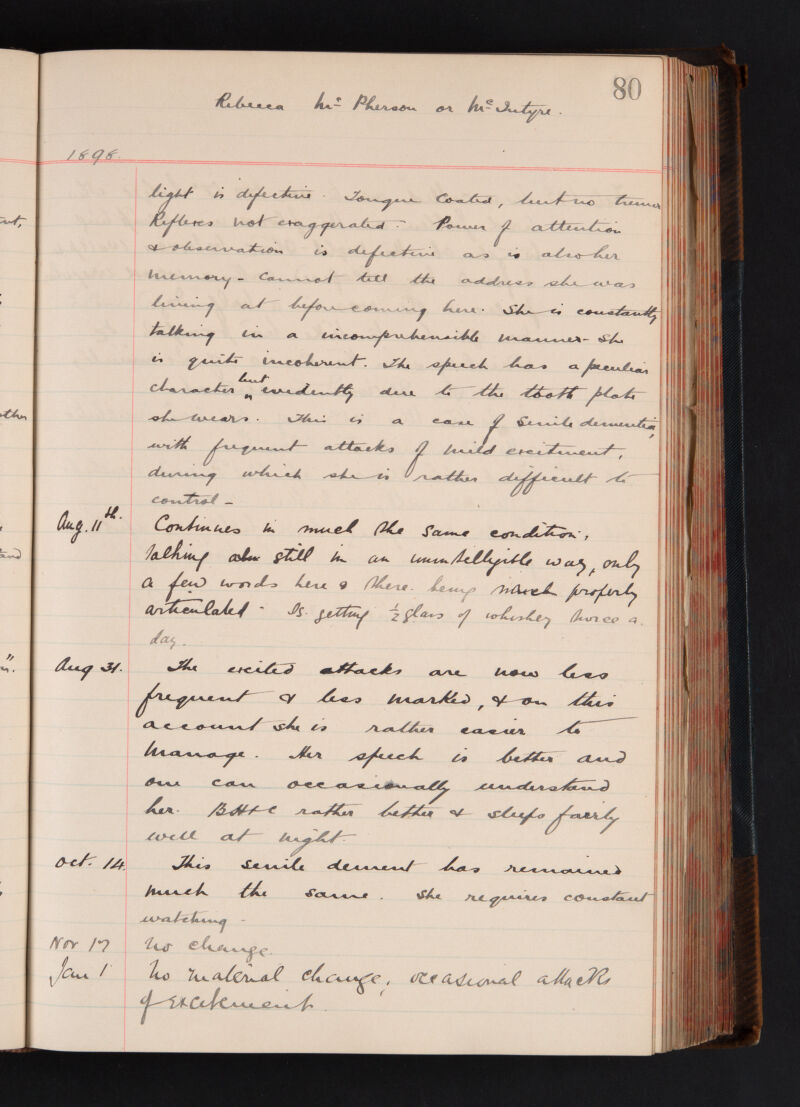 80
Rebecca Mc Pherson or McIntyre.
1898.
light is defective. Tongue coated, but no tremor
Reflexes not exaggerated. Power of attention
& observation is defective as is also her
memory - cannot tell the address she was
living at before coming here. She is constantly
talking in a incomprehensible manner - She
is quite incoherent. The speech has a peculiar
character but evidently due to the tooth plate
she wears. This is a case of Senile dementia,
with frequent attacks of mild excitment,
during which she is rather difficult to
control -
Aug. 11th. Continues in much the same condition,
talking still in an unintelligible way, only
a few words here & there being properly
articulated - Is getting ½ glass of whiskey twice a
day.
Aug 31. The excited attacks are now less
frequent & less marked, & on this
account she is rather easier to
manage. Her speech is better and
one can occasionally understand
her. BH&C rather better & sleeps fairly
well at night.
Oct. 14. This senile dement has remained
much the same. She requires constant
watching -
Nov 17 No change.
Jan 1 No material change, occasional attacks
of excitement.